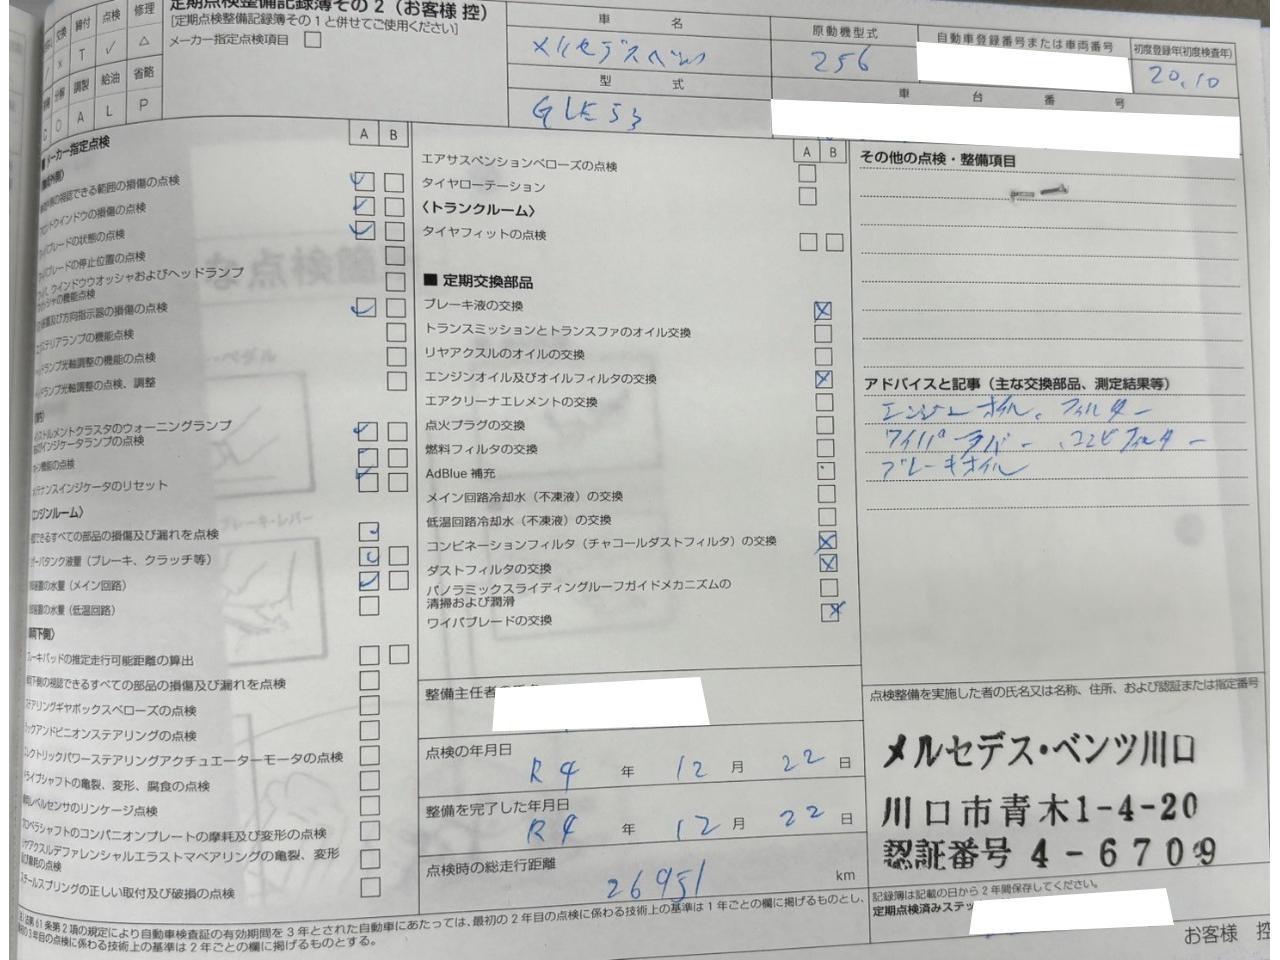 定期点検整備記録簿その2（お客様 控）
[定期点検整備記録簿その1と併せてご使用ください]
メーカー指定点検項目
交換 締付 点検 修理
/ × T ✓ △
分解 調製 給油 省略
C ○ A L P
車 名
メルセデスベンツ
原動機型式
256
自動車登録番号または車両番号
初度登録年(初度検査年)
20.10
型 式
GLE53
車 台 番 号
A B
メーカー指定点検
の視認できる範囲の損傷の点検
フロントウインドウの損傷の点検
ブレードの状態の点検
ブレードの停止位置の点検
ウインドウウオッシャおよびヘッドランプ
の機能点検
及び方向指示器の損傷の点検
ランプの機能点検
ランプ光軸調整の機能の点検
ランプ光軸調整の点検、調整
インストルメントクラスタのウォーニングランプ
インジケータランプの点検
機能の点検
メンテナンスインジケータのリセット
エンジンルーム〉
できるすべての部品の損傷及び漏れを点検
タンク液量（ブレーキ、クラッチ等）
装置の水量（メイン回路）
装置の水量（低温回路）
下側〉
ブレーキパッドの推定走行可能距離の算出
下側の視認できるすべての部品の損傷及び漏れを点検
ステアリングギヤボックスベローズの点検
ラックアンドピニオンステアリングの点検
エレクトリックパワーステアリングアクチュエーターモータの点検
ドライブシャフトの亀裂、変形、腐食の点検
レベルセンサのリンケージ点検
プロペラシャフトのコンパニオンプレートの摩耗及び変形の点検
リヤアクスルデファレンシャルエラストマベアリングの亀裂、変形
の点検
スチールスプリングの正しい取付及び破損の点検
A B
エアサスペンションベローズの点検
タイヤローテーション
〈トランクルーム〉
タイヤフィットの点検
■ 定期交換部品
ブレーキ液の交換
トランスミッションとトランスファのオイル交換
リヤアクスルのオイルの交換
エンジンオイル及びオイルフィルタの交換
エアクリーナエレメントの交換
点火プラグの交換
燃料フィルタの交換
AdBlue 補充
メイン回路冷却水（不凍液）の交換
低温回路冷却水（不凍液）の交換
コンビネーションフィルタ（チャコールダストフィルタ）の交換
ダストフィルタの交換
パノラミックスライディングルーフガイドメカニズムの
清掃および潤滑
ワイパブレードの交換
整備主任者の
点検の年月日
R4 年 12 月 22 日
整備を完了した年月日
R4 年 12 月 22 日
点検時の総走行距離
26951 km
その他の点検・整備項目
アドバイスと記事（主な交換部品、測定結果等）
エンジンオイル、フィルター
ワイパーラバー、コンビフィルター
ブレーキオイル
点検整備を実施した者の氏名又は名称、住所、および認証または指定番号
メルセデス・ベンツ川口
川口市青木1-4-20
認証番号 4-6709
記録簿は記載の日から2年間保存してください。
定期点検済みステッ
第61条第2項の規定により自動車検査証の有効期間を3年とされた自動車にあたっては、最初の2年目の点検に係わる技術上の基準は1年ごとの欄に掲げるものとし、
3年目の点検に係わる技術上の基準は2年ごとの欄に掲げるものとする。
お客様 控